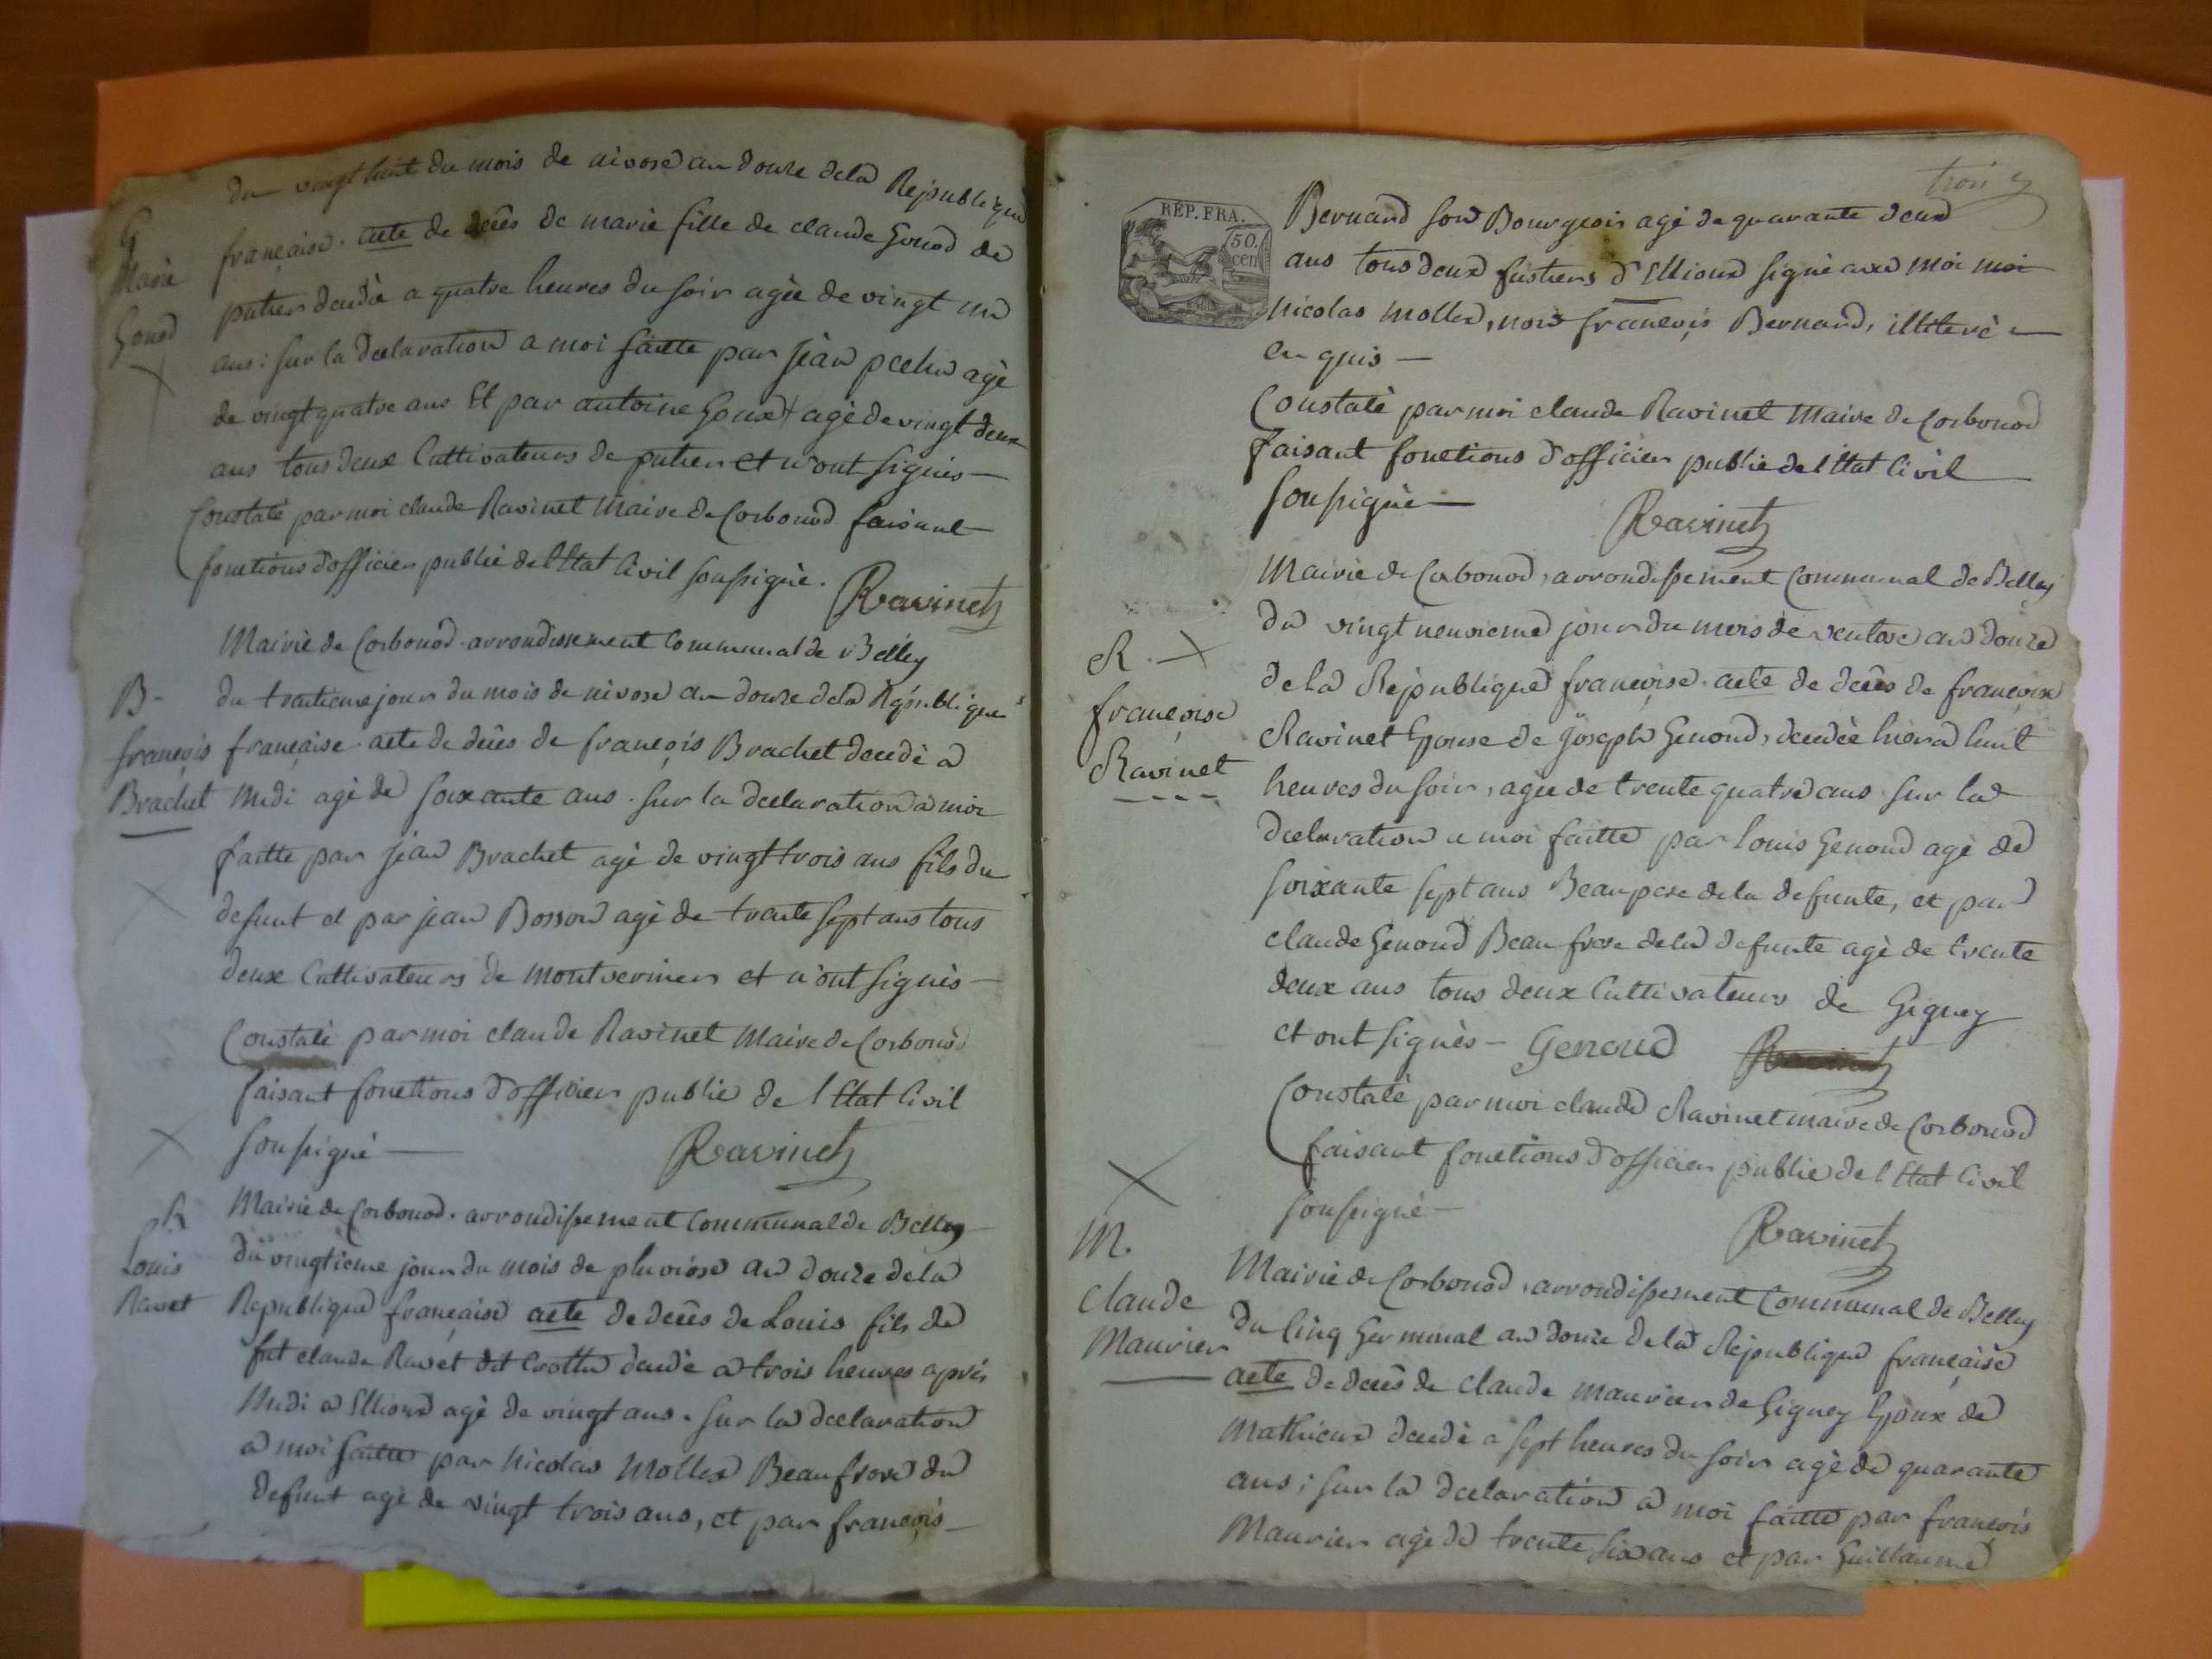 du vingt huit du mois de nivose an douze de la Republique
G
Marie
Gonod
française. acte de décès de marie fille de claude Gonod de
putier décédée a quatre heures du soir agée de vingt un
ans : sur la declaration a moi faitte par jean agé
de vingt quatre ans Et par antoine agé de vingt deux
ans tous deux Cultivateurs de putier et n'ont signés —
Constaté par moi claude Ravinet Maire de Corbonod faisant
fonctions d'officier public de l'Etat Civil soussigné. Ravinet
Mairie de Corbonod. arrondissement Communal de Belley
B -
françois
Brachet
du trentieme jour du mois de nivose an douze de la République
française. acte de décès de françois Brachet decedé a
Midi agé de soixante ans. sur la declaration a moi
faitte par jean Brachet agé de vingt trois ans fils du
defunt et par jean Bosson agé de trente sept ans tous
deux Cultivateurs de montverinier et n'ont signés —
Constaté par moi claude Ravinet Maire de Corbonod
faisant fonctions d'officier public de l'Etat Civil
soussigné — Ravinet
R
Louis
Ravet
Mairie de Corbonod. arrondissement Communal de Belley
du vingtieme jour du mois de pluviose an douze de la
Republique française acte de décès de Louis fils de
fut claude Ravet dit Crottu décédé a trois heures après
Midi a Ellioux agé de vingt ans. sur la declaration
a moi faitte par Nicolas Mollex Beaufrere du
defunt agé de vingt trois ans, et par françois —
trois
REP. FRA.
50.
cen
Bernard son Bourgeois agé de quarante deux
ans tous deux fustiers d'Ellioux signé avec moi moi
Nicolas Mollex, non françois Bernard, illiteré —
enquis —
Constaté par moi claude Ravinet Maire de Corbonod
faisant fonctions d'officier public de l'Etat Civil
soussigné — Ravinet
Mairie de Corbonod, arrondissement Communal de Belley
R.
françoise
Ravinet
du vingt neuvieme jour du mois de ventose an douze
de la République françoise. acte de décès de françoise
Ravinet Epouse de joseph Genoud, decedée hier a huit
heures du soir, agée de trente quatre ans sur la
declaration a moi faitte par louis Genoud agé de
soixante sept ans Beaupere de la defunte, et par
claude Genoud Beaufrere de la defunte agé de trente
deux ans tous deux Cultivateurs de Gigney
et ont signés — Genoud Ravinet
Constaté par moi claude Ravinet maire de Corbonod
faisant fonctions d'officier public de l'Etat Civil
soussigné — Ravinet
M.
claude
Maurier
Mairie de Corbonod, arrondissement Communal de Belley
du Cinq Germinal an douze de la République française
acte de décès de claude maurier de Gigney Epoux de
Mathieux décédé a sept heures du soir agé de quarante
ans ; sur la declaration a moi faitte par françois
Maurier agé de trente six ans et par Guillaume